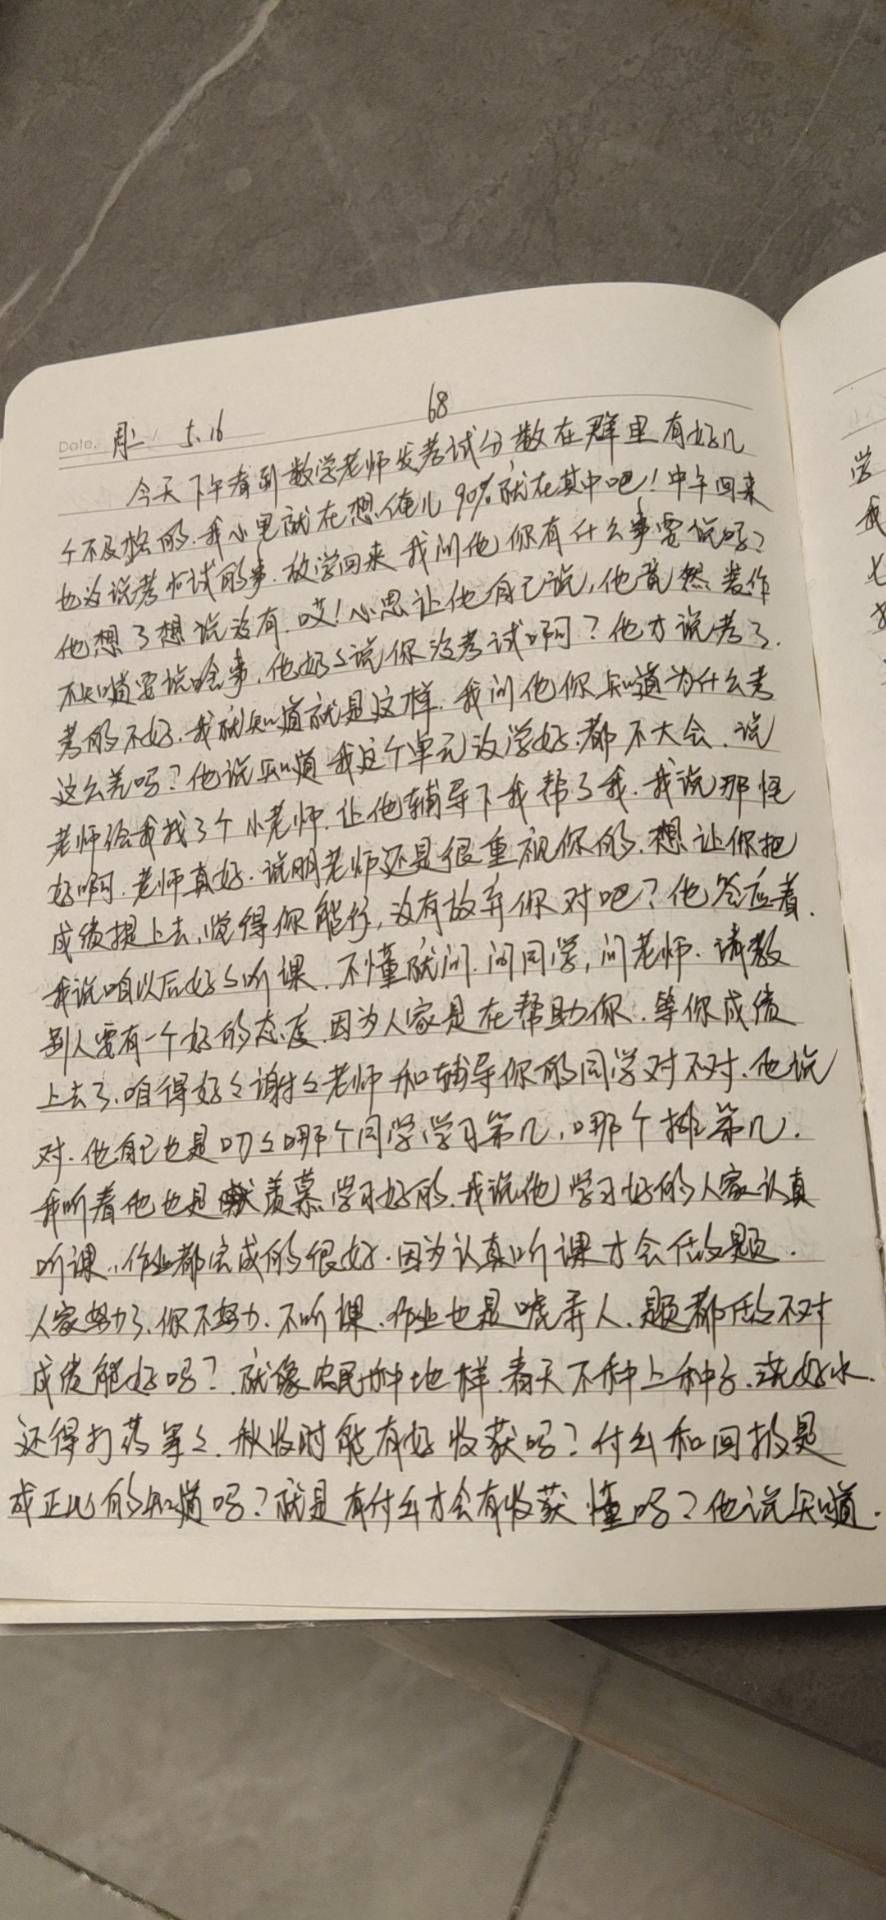 Date.
周二 5.16 68
今天下午看到数学老师发考试分数在群里有好几
个不及格的.我心里就在想俺儿90%就在其中吧!中午回来
也没说考试的事.放学回来我问他你有什么事要说吗?
他想了想说没有.哎!心思让他自己说,他竟然装作
不知道要说啥事,他奶々说你没考试啊?他才说考了.
考的不好.我就知道就是这样.我问他你知道为什么考
这么差吗?他说知道我这个单元没学好.都不大会.说
老师给我找了个小老师.让他辅导下我帮了我.我说那怪
好啊.老师真好.说明老师还是很重视你的.想让你把
成绩提上去,觉得你能行,没有放弃你对吧?他答应着.
我说咱以后好々听课.不懂就问.问同学,问老师.请教
别人要有一个好的态度.因为人家是在帮助你.等你成绩
上去了.咱得好々谢々老师和辅导你的同学对不对.他说
对.他自己也是叨々哪个同学学习第几,哪个排第几.
我听着他也是羡慕学习好的.我说他学习好的人家认真
听课,作业都完成的很好.因为认真听课才会做题.
人家努力了,你不努力.不听课.作业也是唬弄人.题都做不对
成绩能好吗?就像农民种地样.春天不种上种子.浇好水.
还得打药等々.秋收时能有好收获吗?付出和回报是
成正比的知道吗?就是有付出才会有收获懂吗?他说知道.
学
我